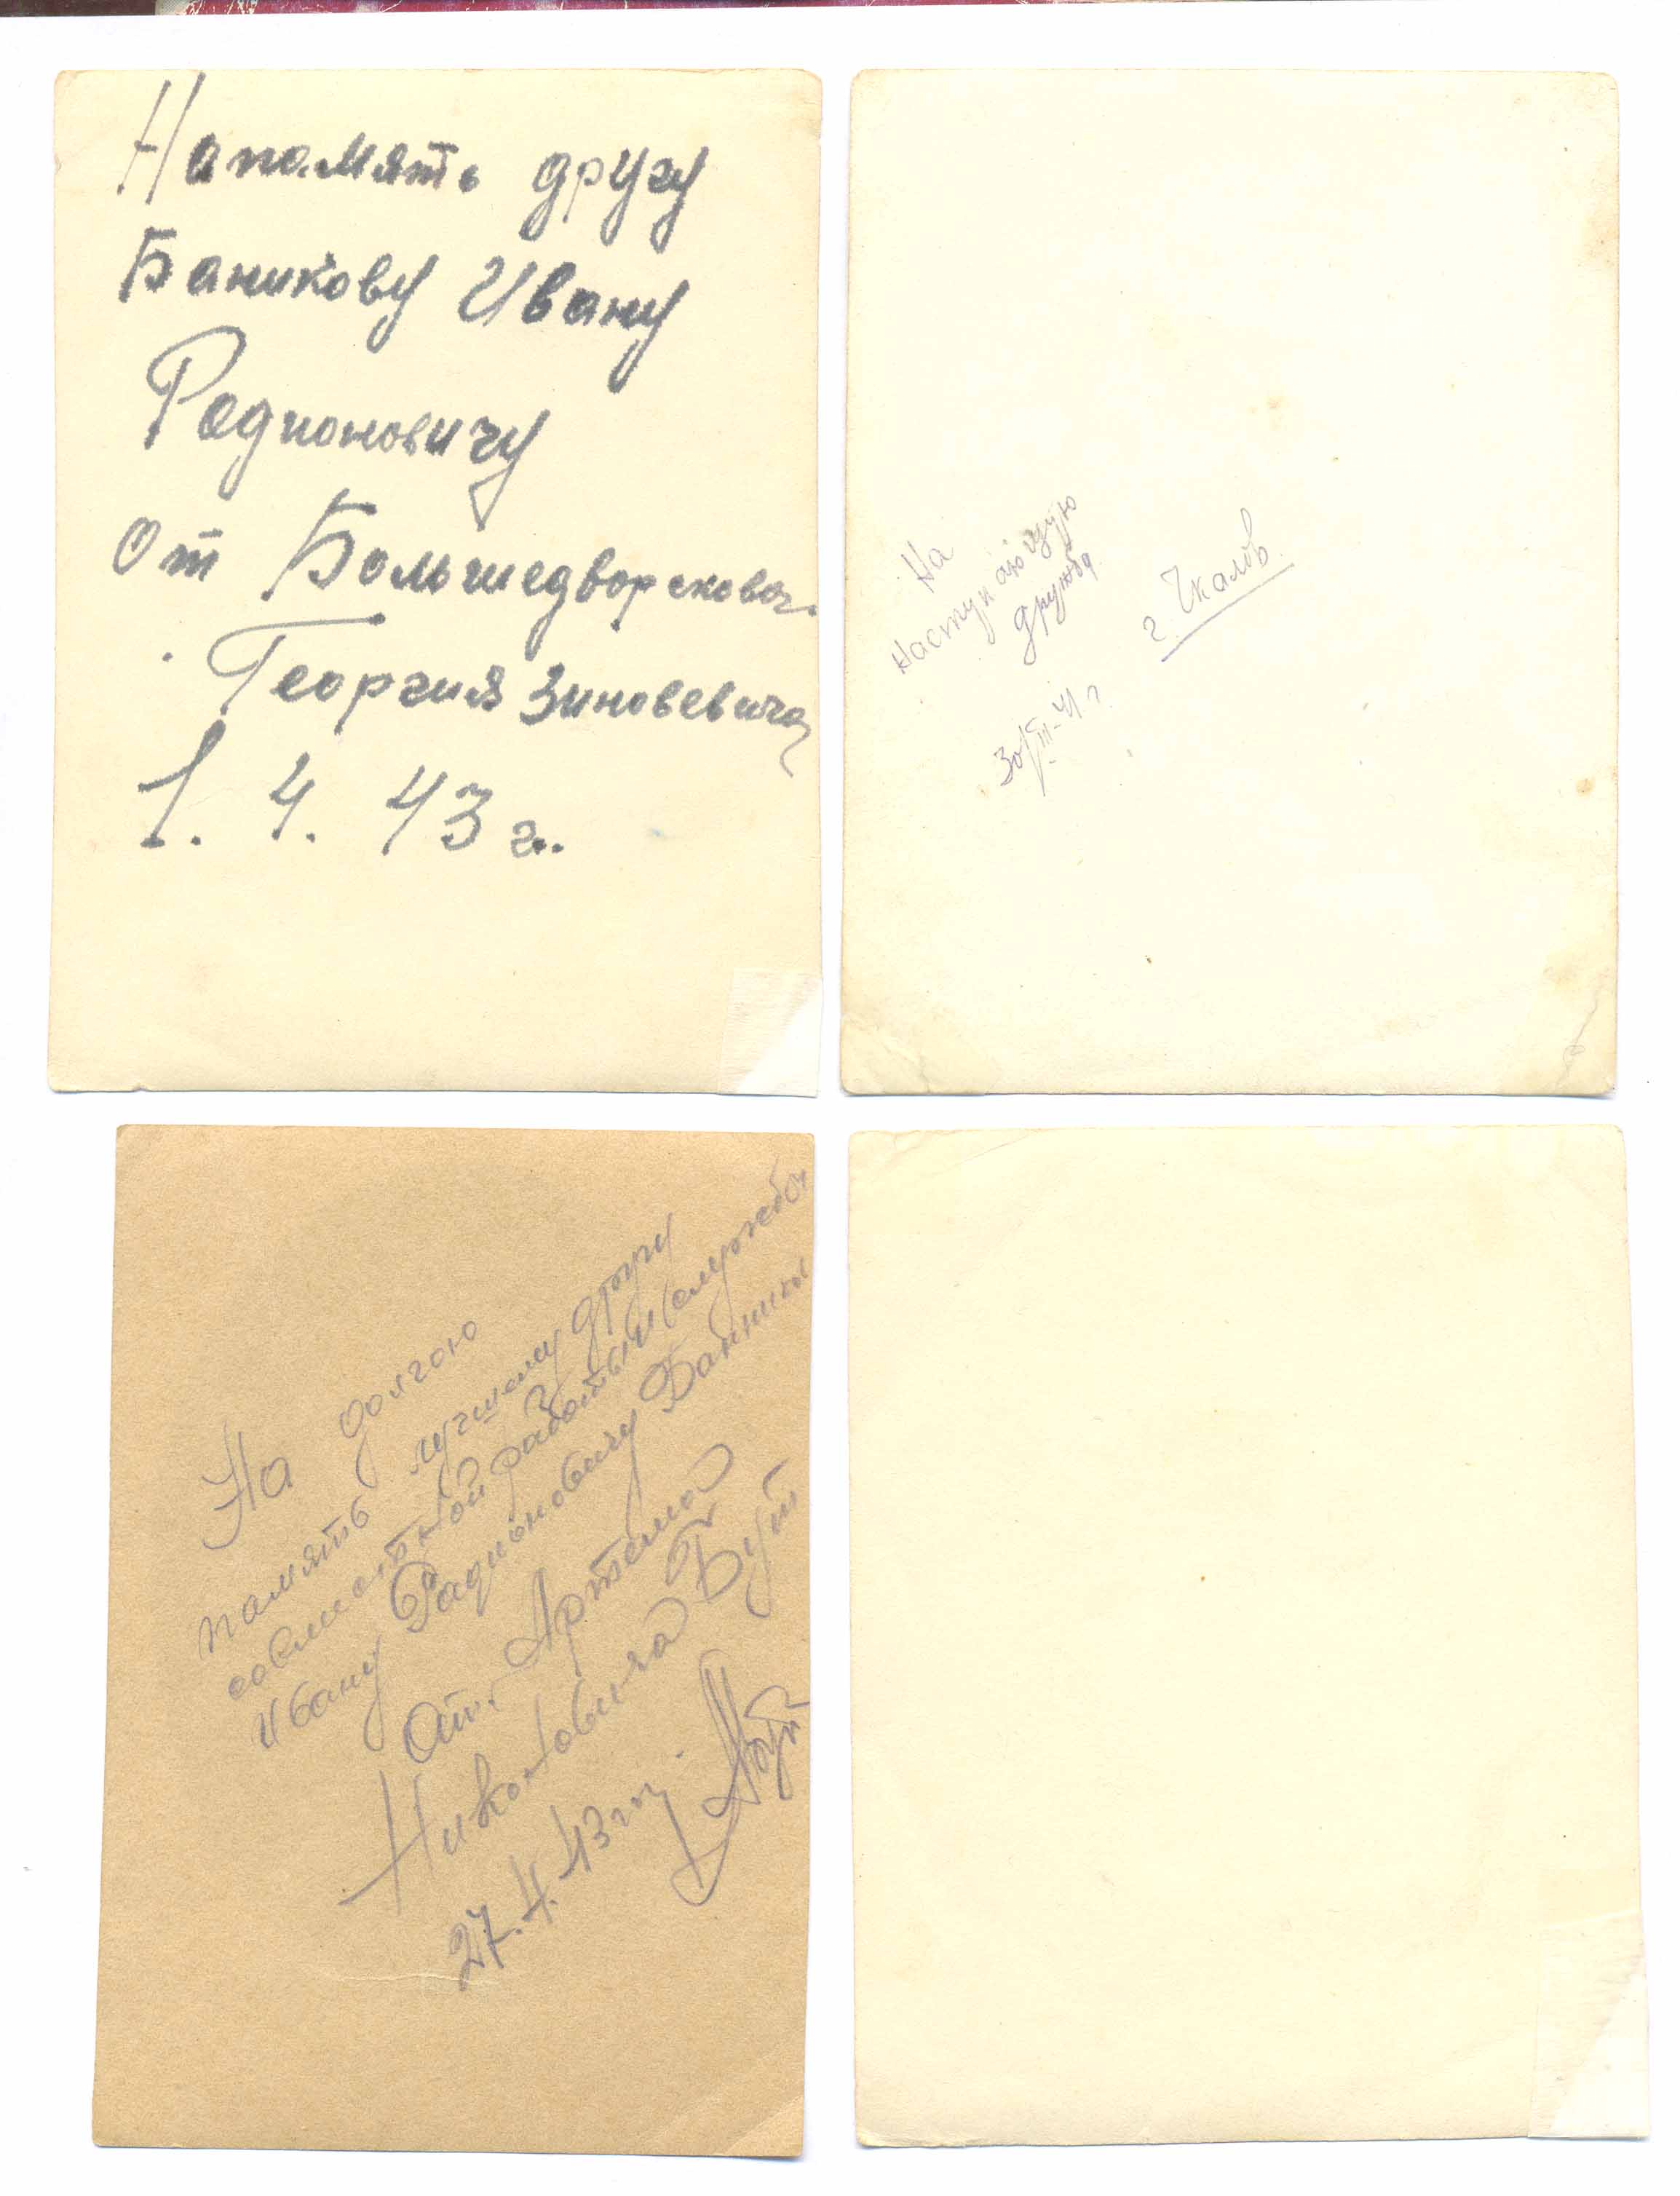 На память другу
Баникову Ивану
Родионовичу
От Большедворскова
Георгия Зиновевича
1. 4. 43 г.
На
наступающую
дружба
30/III-41 г
г. Чкалов
На долгою
память лучшему другу
совместной работы и службы
Ивану Радионовичу
От. Артема
Никоновича Бут
27.4.43 г.